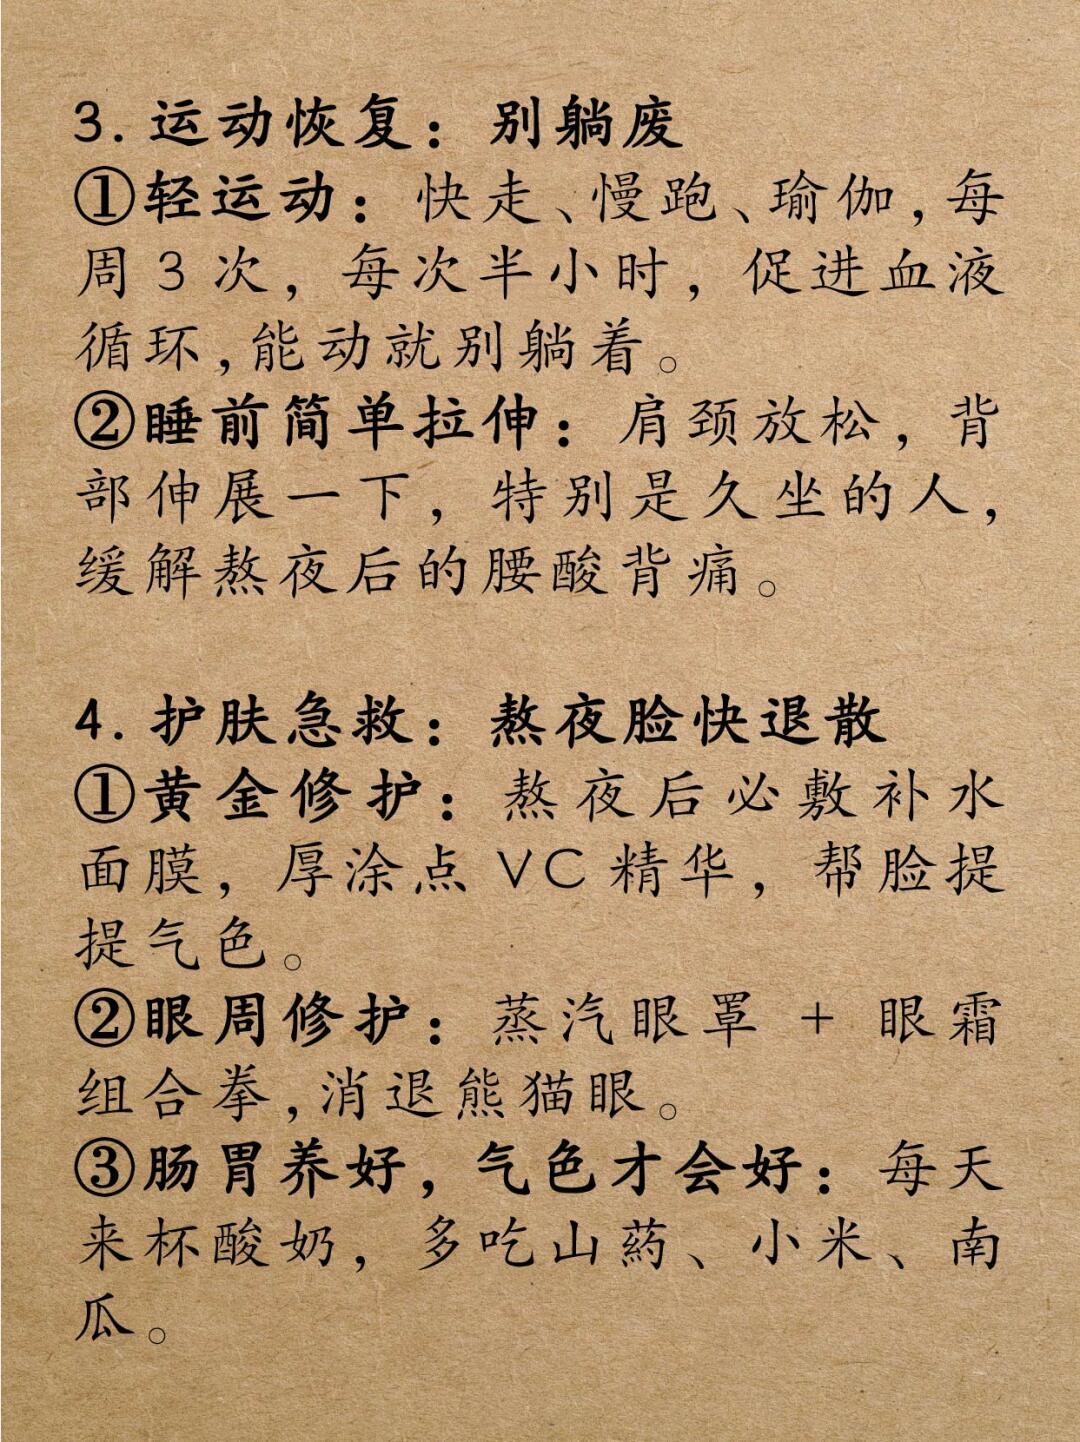 3. 运动恢复：别躺废
①轻运动：快走、慢跑、瑜伽，每
周3次，每次半小时，促进血液
循环，能动就别躺着。
②睡前简单拉伸：肩颈放松，背
部伸展一下，特别是久坐的人，
缓解熬夜后的腰酸背痛。
4. 护肤急救：熬夜脸快退散
①黄金修护：熬夜后必敷补水
面膜，厚涂点VC精华，帮脸提
提气色。
②眼周修护：蒸汽眼罩 + 眼霜
组合拳，消退熊猫眼。
③肠胃养好，气色才会好：每天
来杯酸奶，多吃山药、小米、南
瓜。